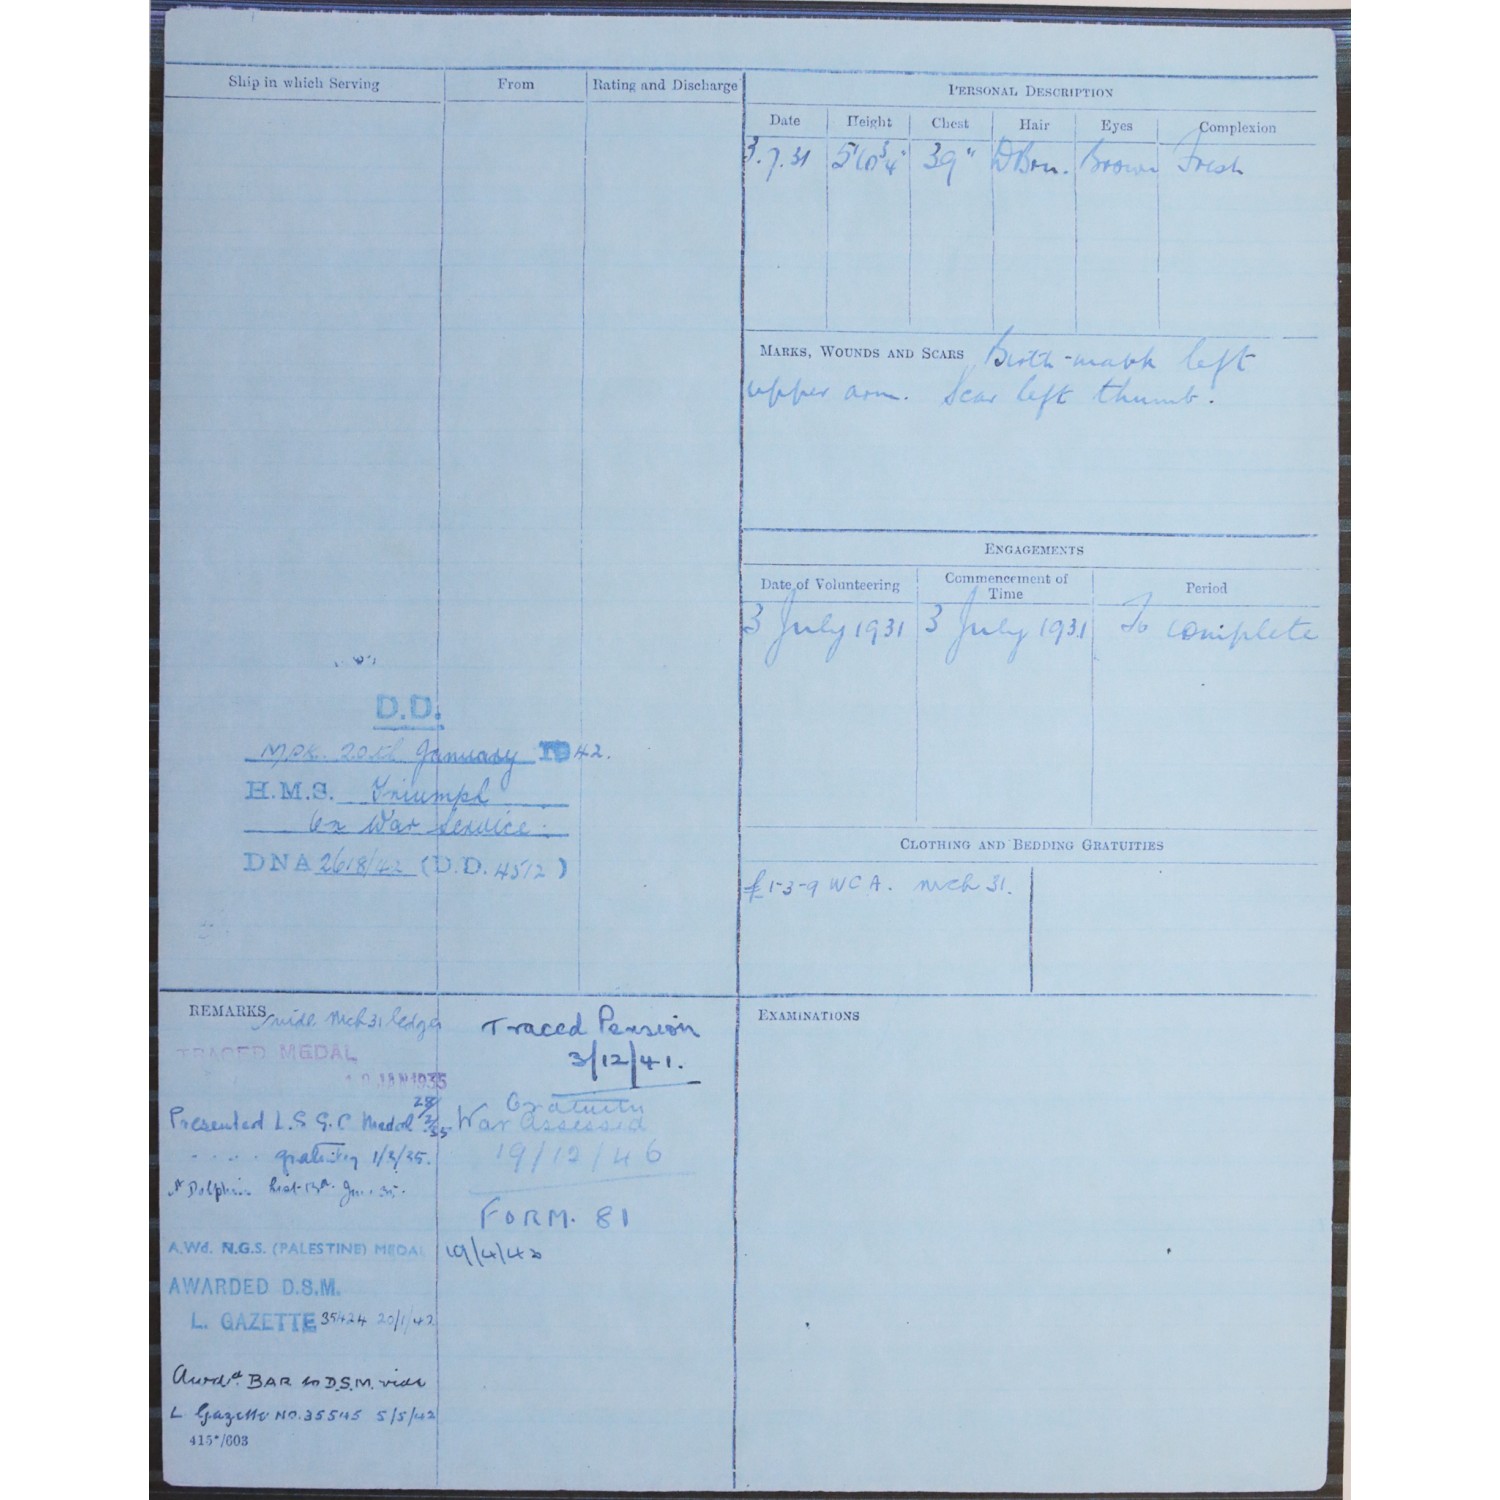 Ship in which Serving From Rating and Discharge
PERSONAL DESCRIPTION
Date Height Chest Hair Eyes Complexion
3.7.31 5'10¾" 39" DBrn. Brown Fresh
MARKS, WOUNDS AND SCARS Birth-mark left
upper arm. Scar left thumb.
ENGAGEMENTS
Date of Volunteering Commencement of Time Period
3 July 1931 3 July 1931 To complete
D.D.
MPK. 20th January 1942.
H.M.S. Triumph
On War Service.
DNA 2618/42 (D.D. 4512)
CLOTHING AND BEDDING GRATUITIES
£1-3-9 WCA. Mch 31.
REMARKS vide Mch 31 ledger
TRACED MEDAL
JAN 1935
Presented L.S G.C Medal 28/2/35
gratuity 1/3/35.
Dolphin
A.Wd. N.G.S. (PALESTINE) MEDAL
AWARDED D.S.M.
L. GAZETTE 35424 20/1/42
Award. BAR to D.S.M. vide
L Gazette NO. 35545 5/5/42
415*/603
Traced Pension
3/12/41.
War Gratuity
Assessed
19/12/46
FORM. 81
19/4/42
EXAMINATIONS